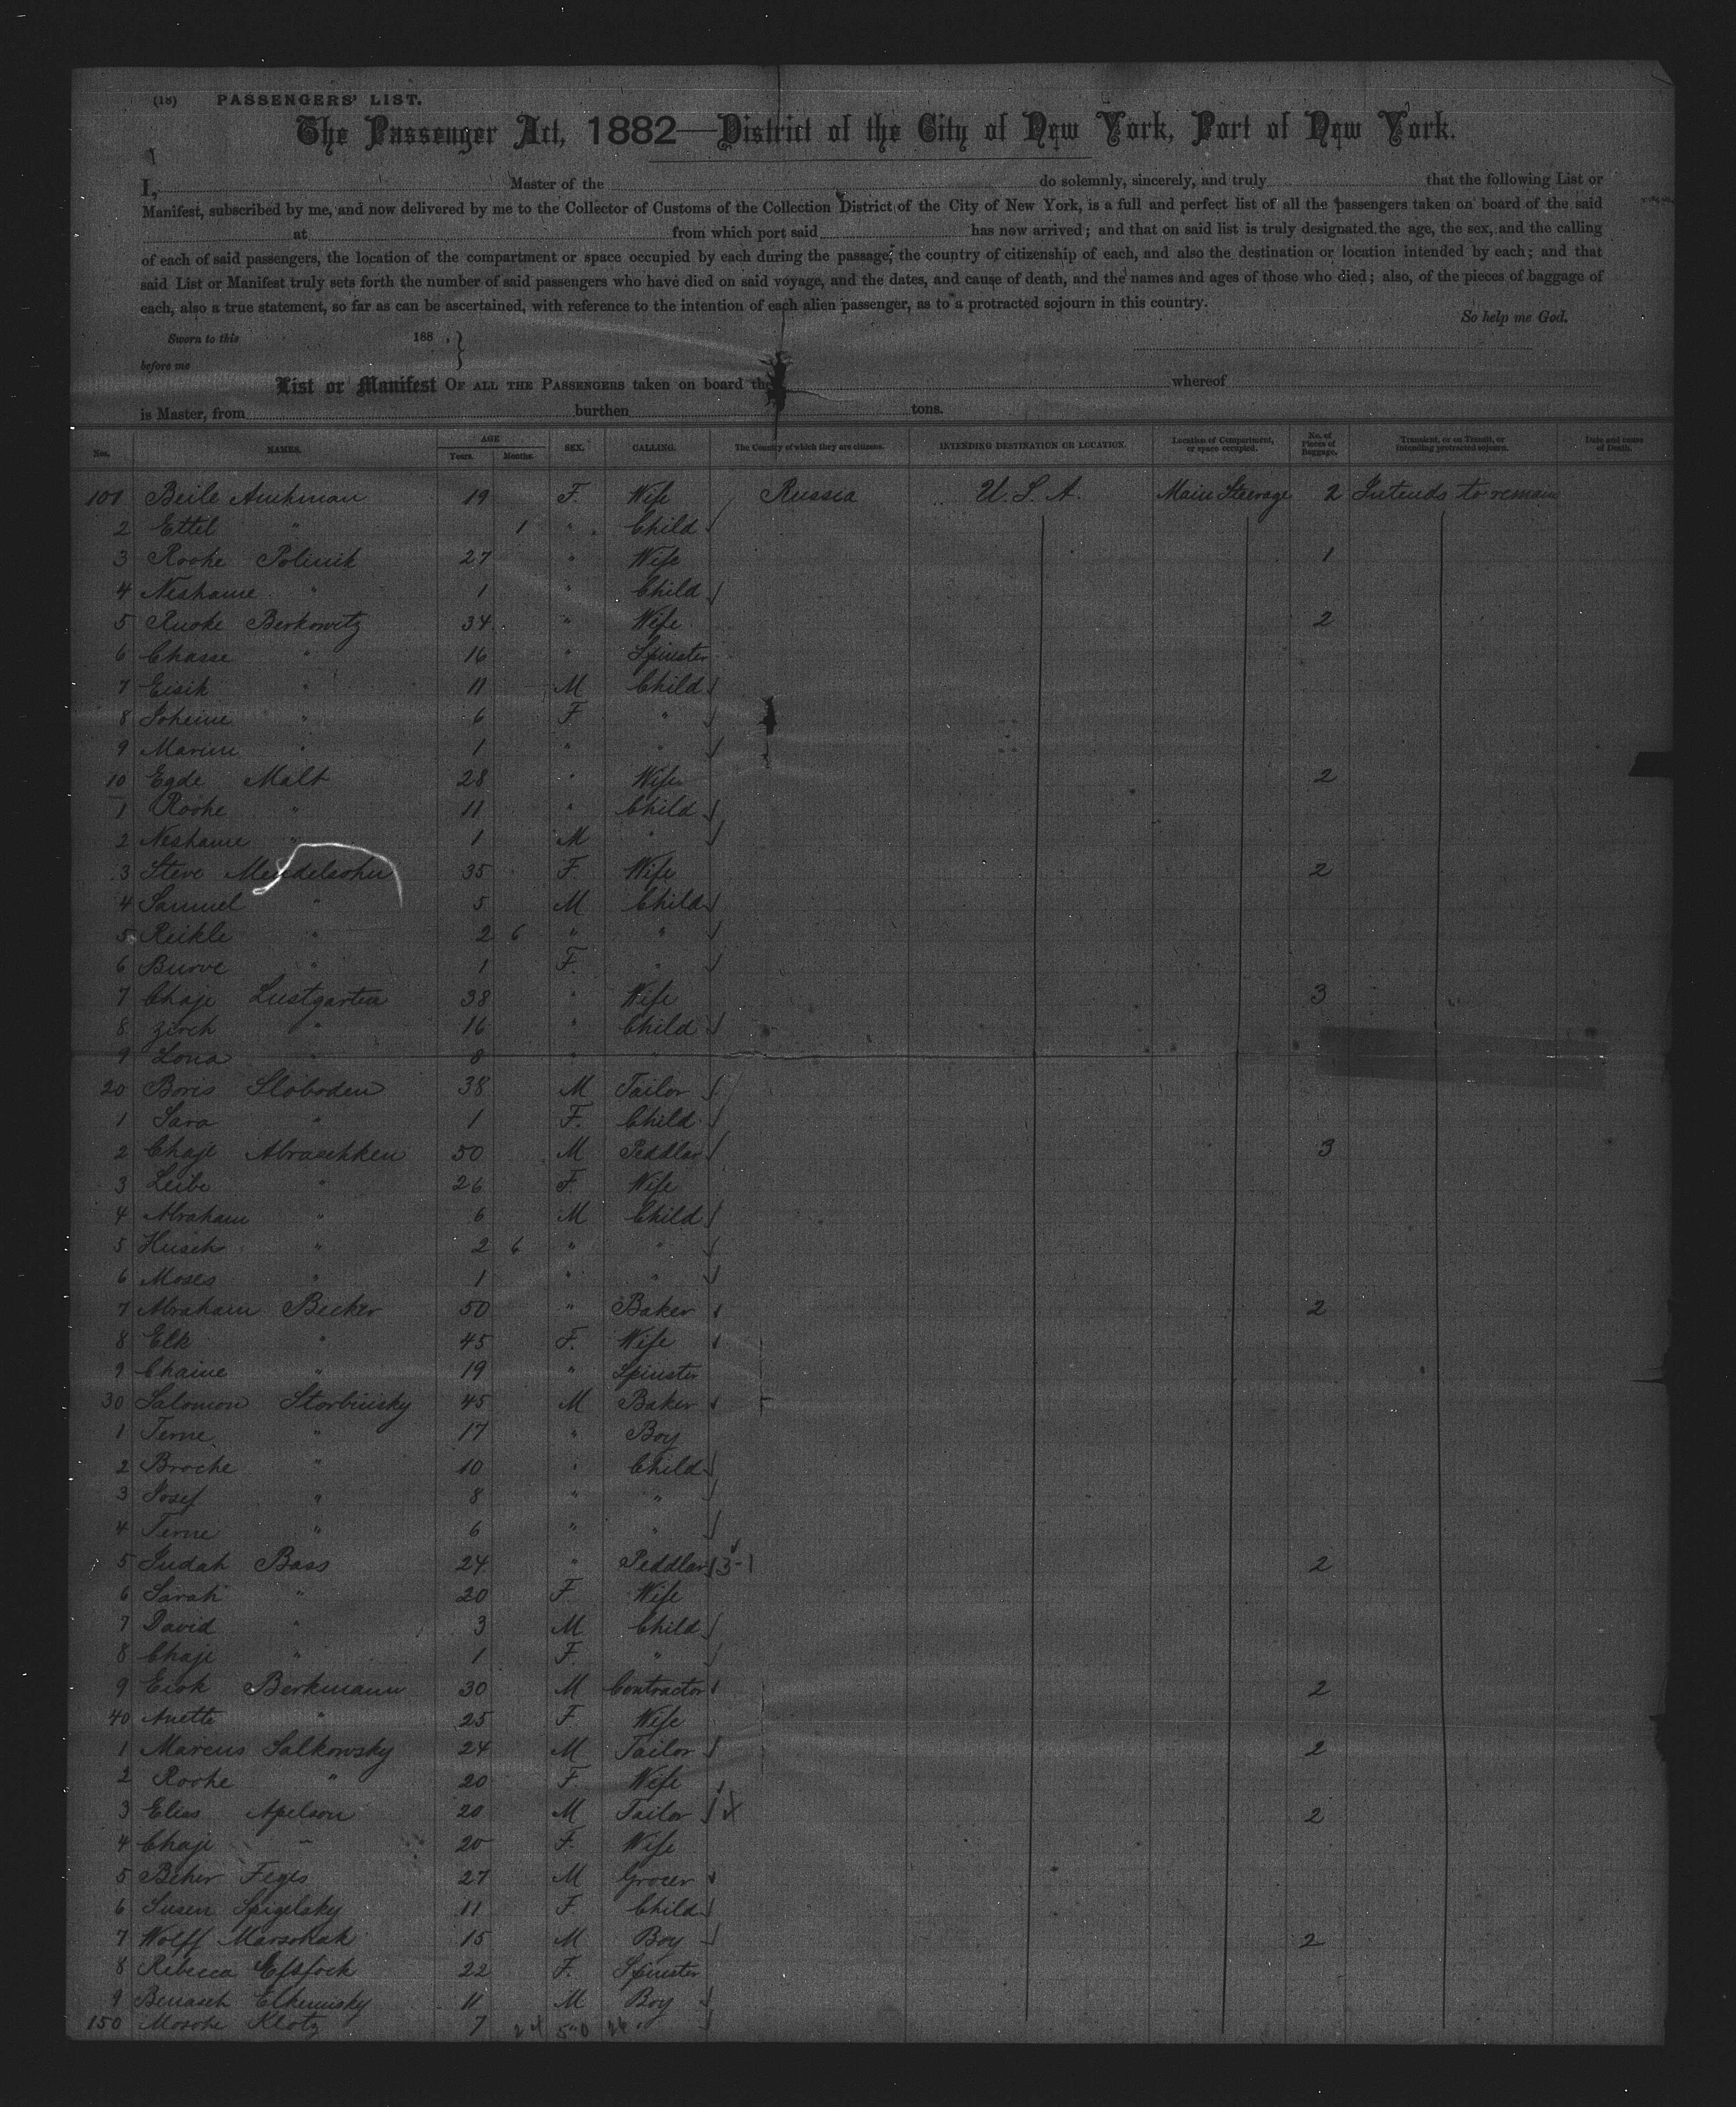 (18) PASSENGERS' LIST.
The Passenger Act, 1882—District of the City of New York, Port of New York.
I, Master of the do solemnly, sincerely, and truly that the following List or
Manifest, subscribed by me, and now delivered by me to the Collector of Customs of the Collection District of the City of New York, is a full and perfect list of all the passengers taken on board of the said
at from which port said has now arrived; and that on said list is truly designated the age, the sex, and the calling
of each of said passengers, the location of the compartment or space occupied by each during the passage, the country of citizenship of each, and also the destination or location intended by each; and that
said List or Manifest truly sets forth the number of said passengers who have died on said voyage, and the dates, and cause of death, and the names and ages of those who died; also, of the pieces of baggage of
each, also a true statement, so far as can be ascertained, with reference to the intention of each alien passenger, as to a protracted sojourn in this country.
So help me God.
Sworn to this 188
before me
List or Manifest OF ALL THE PASSENGERS taken on board the whereof
is Master, from burthen tons.
Nos. NAMES. AGE Years. Months. SEX. CALLING. The Country of which they are citizens. INTENDING DESTINATION OR LOCATION. Location of Compartment, or space occupied. No. of Pieces of Baggage. Transient, or on Transit, or intending protracted sojourn. Date and cause of Death.
101 Beile 19 F. Wife Russia U.S.A. Main Steerage 2 Intends to remain
2 Ettel " 1 " Child
3 Rooke 27 " Wife 1
4 Neshame " 1 " Child
5 Berkowitz 34 " Wife 2
6 Chasse " 16 " Spinster
7 Eisik " 11 M Child
8 " 6 F "
9 " 1 " "
10 Egde Malt 28 " Wife 2
1 Rooke " 11 " Child
2 Neshame " 1 M "
3 Steve Mendelsohn 35 F. Wife 2
4 Samuel " 5 M Child
5 Reikle " 2 6 " "
6 Burve " 1 F. "
7 Chaje Lustgarten 38 " Wife 3
8 Zirch " 16 " Child
9 Lona " 8 " "
20 Boris Sloboden 38 M Tailor
1 Sara " 1 F. Child
2 Chaje Abraschken 50 M Peddlar 3
3 Leibe " 26 F. Wife
4 Abraham " 6 M Child
5 " 2 6 " "
6 Moses " 1 " "
7 Abraham Becker 50 " Baker 2
8 Elk " 45 F. Wife
9 Chaine " 19 " Spinster
30 Salomon Storbinsky 45 M Baker
1 Terne " 17 " Boy
2 Broche " 10 " Child
3 Josef " 8 " "
4 Terne " 6 " "
5 Judah Bass 24 " Peddlar 2
6 Sarah " 20 F Wife
7 David " 3 M Child
8 Chaje " 1 F. "
9 Berkmann 30 M Contractor 2
40 Anette " 25 F. Wife
1 Marcus Salkowsky 24 M Tailor 2
2 Rooke " 20 F. Wife
3 Elias Apelson 20 M Tailor 2
4 Chaje " 20 F. Wife
5 Feges 27 M Grocer
6 Susen Spigelsky 11 F. Child
7 Wolff Marschak 15 M Boy 2
8 Rebecca 22 F. Spinster
9 Benasch 11 M Boy
150 Klotz 7 "